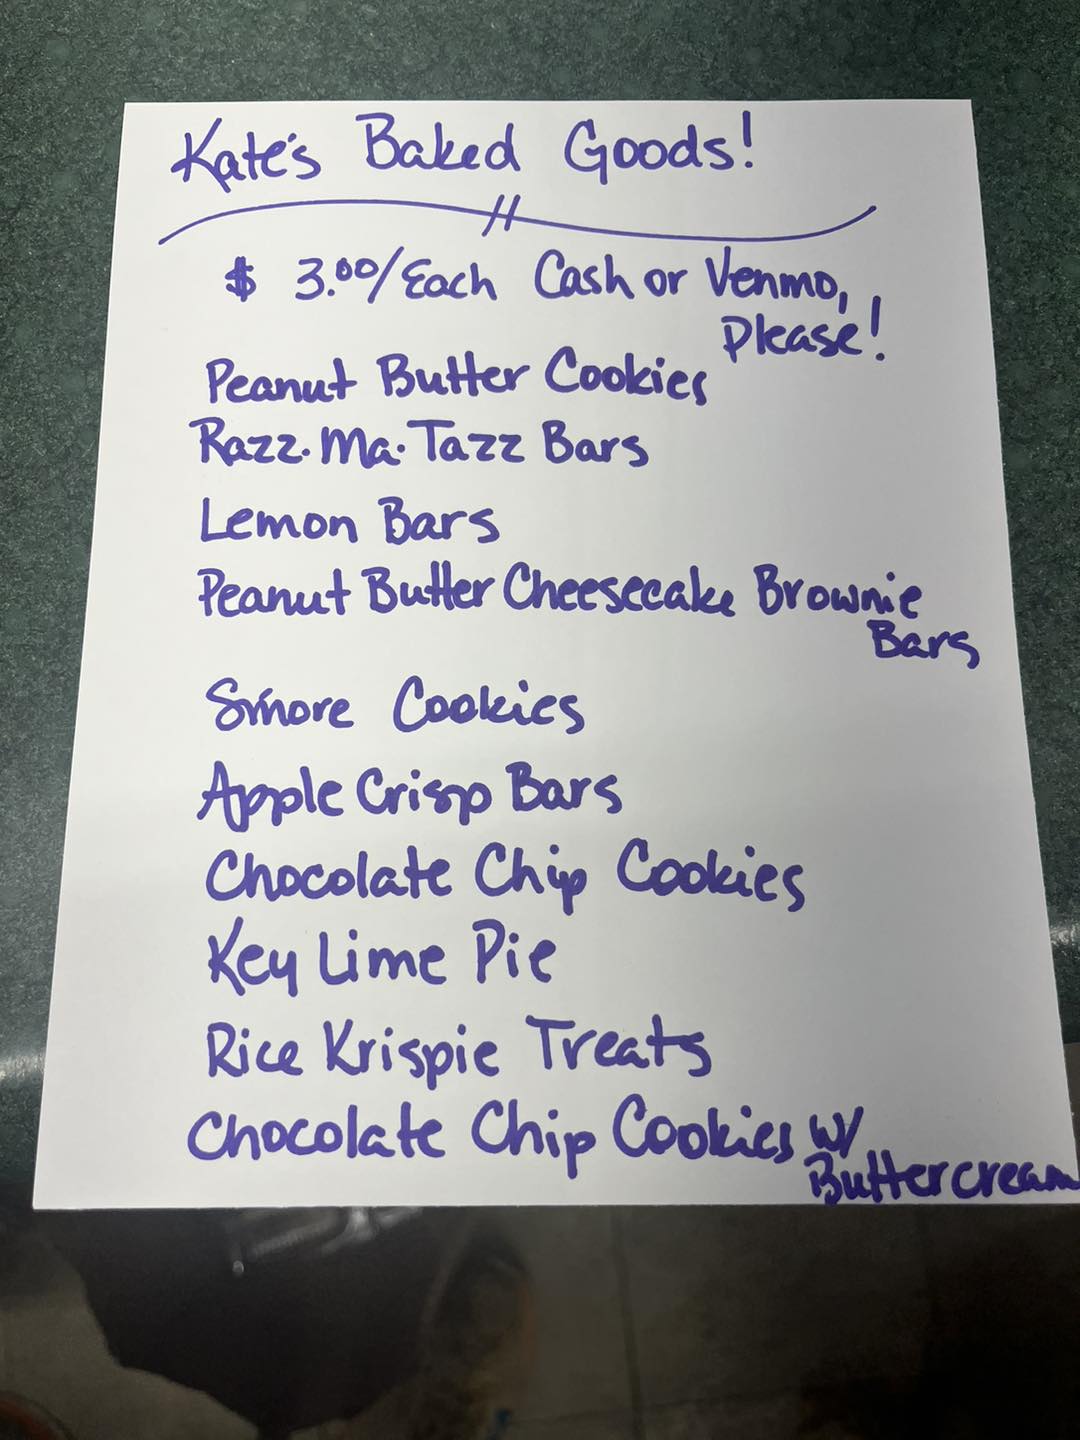 Kate's Baked Goods!
$ 3.00/Each Cash or Venmo,
Please!
Peanut Butter Cookies
Razz.Ma.Tazz Bars
Lemon Bars
Peanut Butter Cheesecake Brownie
Bars
S'more Cookies
Apple Crisp Bars
Chocolate Chip Cookies
Key Lime Pie
Rice Krispie Treats
Chocolate Chip Cookies w/
Buttercream